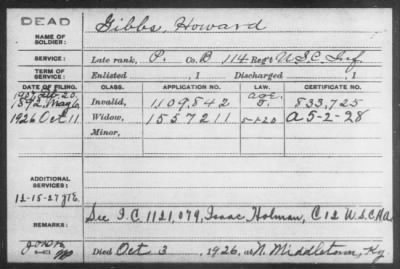 DEAD
Gibbs, Howard
NAME OF SOLDIER:
SERVICE: Late rank, P. Co. B 114 Reg't U.S.C. Inf.
TERM OF SERVICE: Enlisted , 1 Discharged , 1
DATE OF FILING. CLASS. APPLICATION NO. LAW. CERTIFICATE NO.
1892, May 6 Invalid, 1109,842 age 833,725
1926 Oct 11 Widow, 1557211 5-1-20 A 5-2-28
Minor,
ADDITIONAL SERVICES:
12-15-27
See I.C. 1121,079, Isaac Holman, C 12 U.S.C.H.A.
REMARKS:
Died Oct 3, 1926, at N. Middletown, Ky